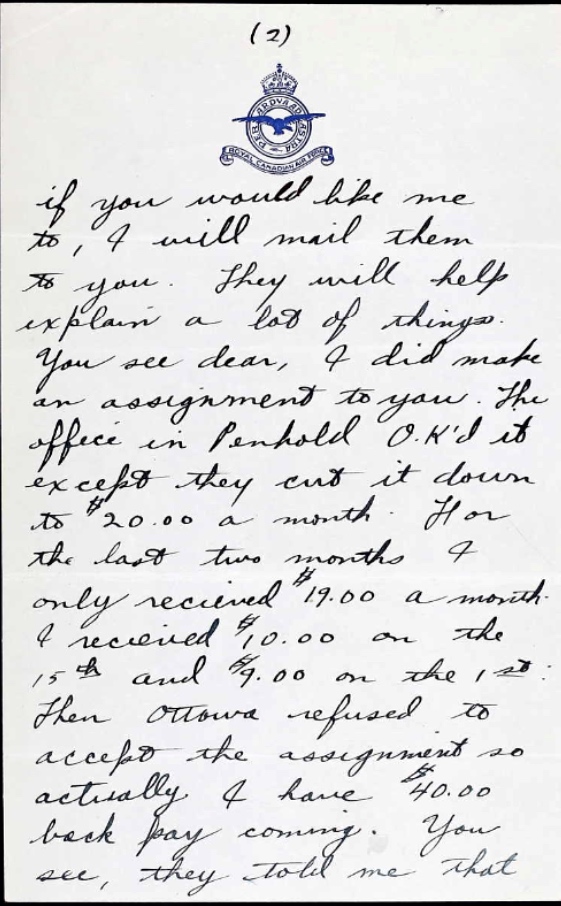 (2)
PER ARDVA AD ASTRA
ROYAL CANADIAN AIR FORCE
if you would like me
to, I will mail them
to you. They will help
explain a lot of things.
You see dear, I did make
an assignment to you. The
office in Penhold O.K'd it
except they cut it down
to $20.00 a month. For
the last two months I
only recieved $19.00 a month.
I recieved $10.00 on the
15th and $9.00 on the 1st.
Then Ottowa refused to
accept the assignment so
actually I have $40.00
back pay coming. You
see, they told me that